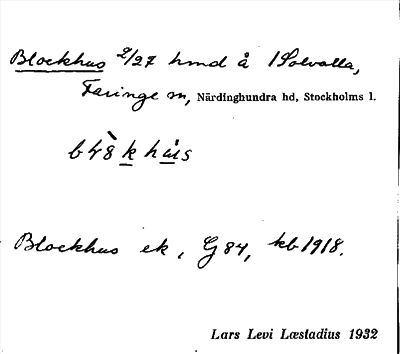 Blockhus 2/27 hmd å 1 Solvalla,
Faringe sn, Närdinghundra hd, Stockholms l.
Blockhus ek, G 84, kb 1918.
Lars Levi Læstadius 1932